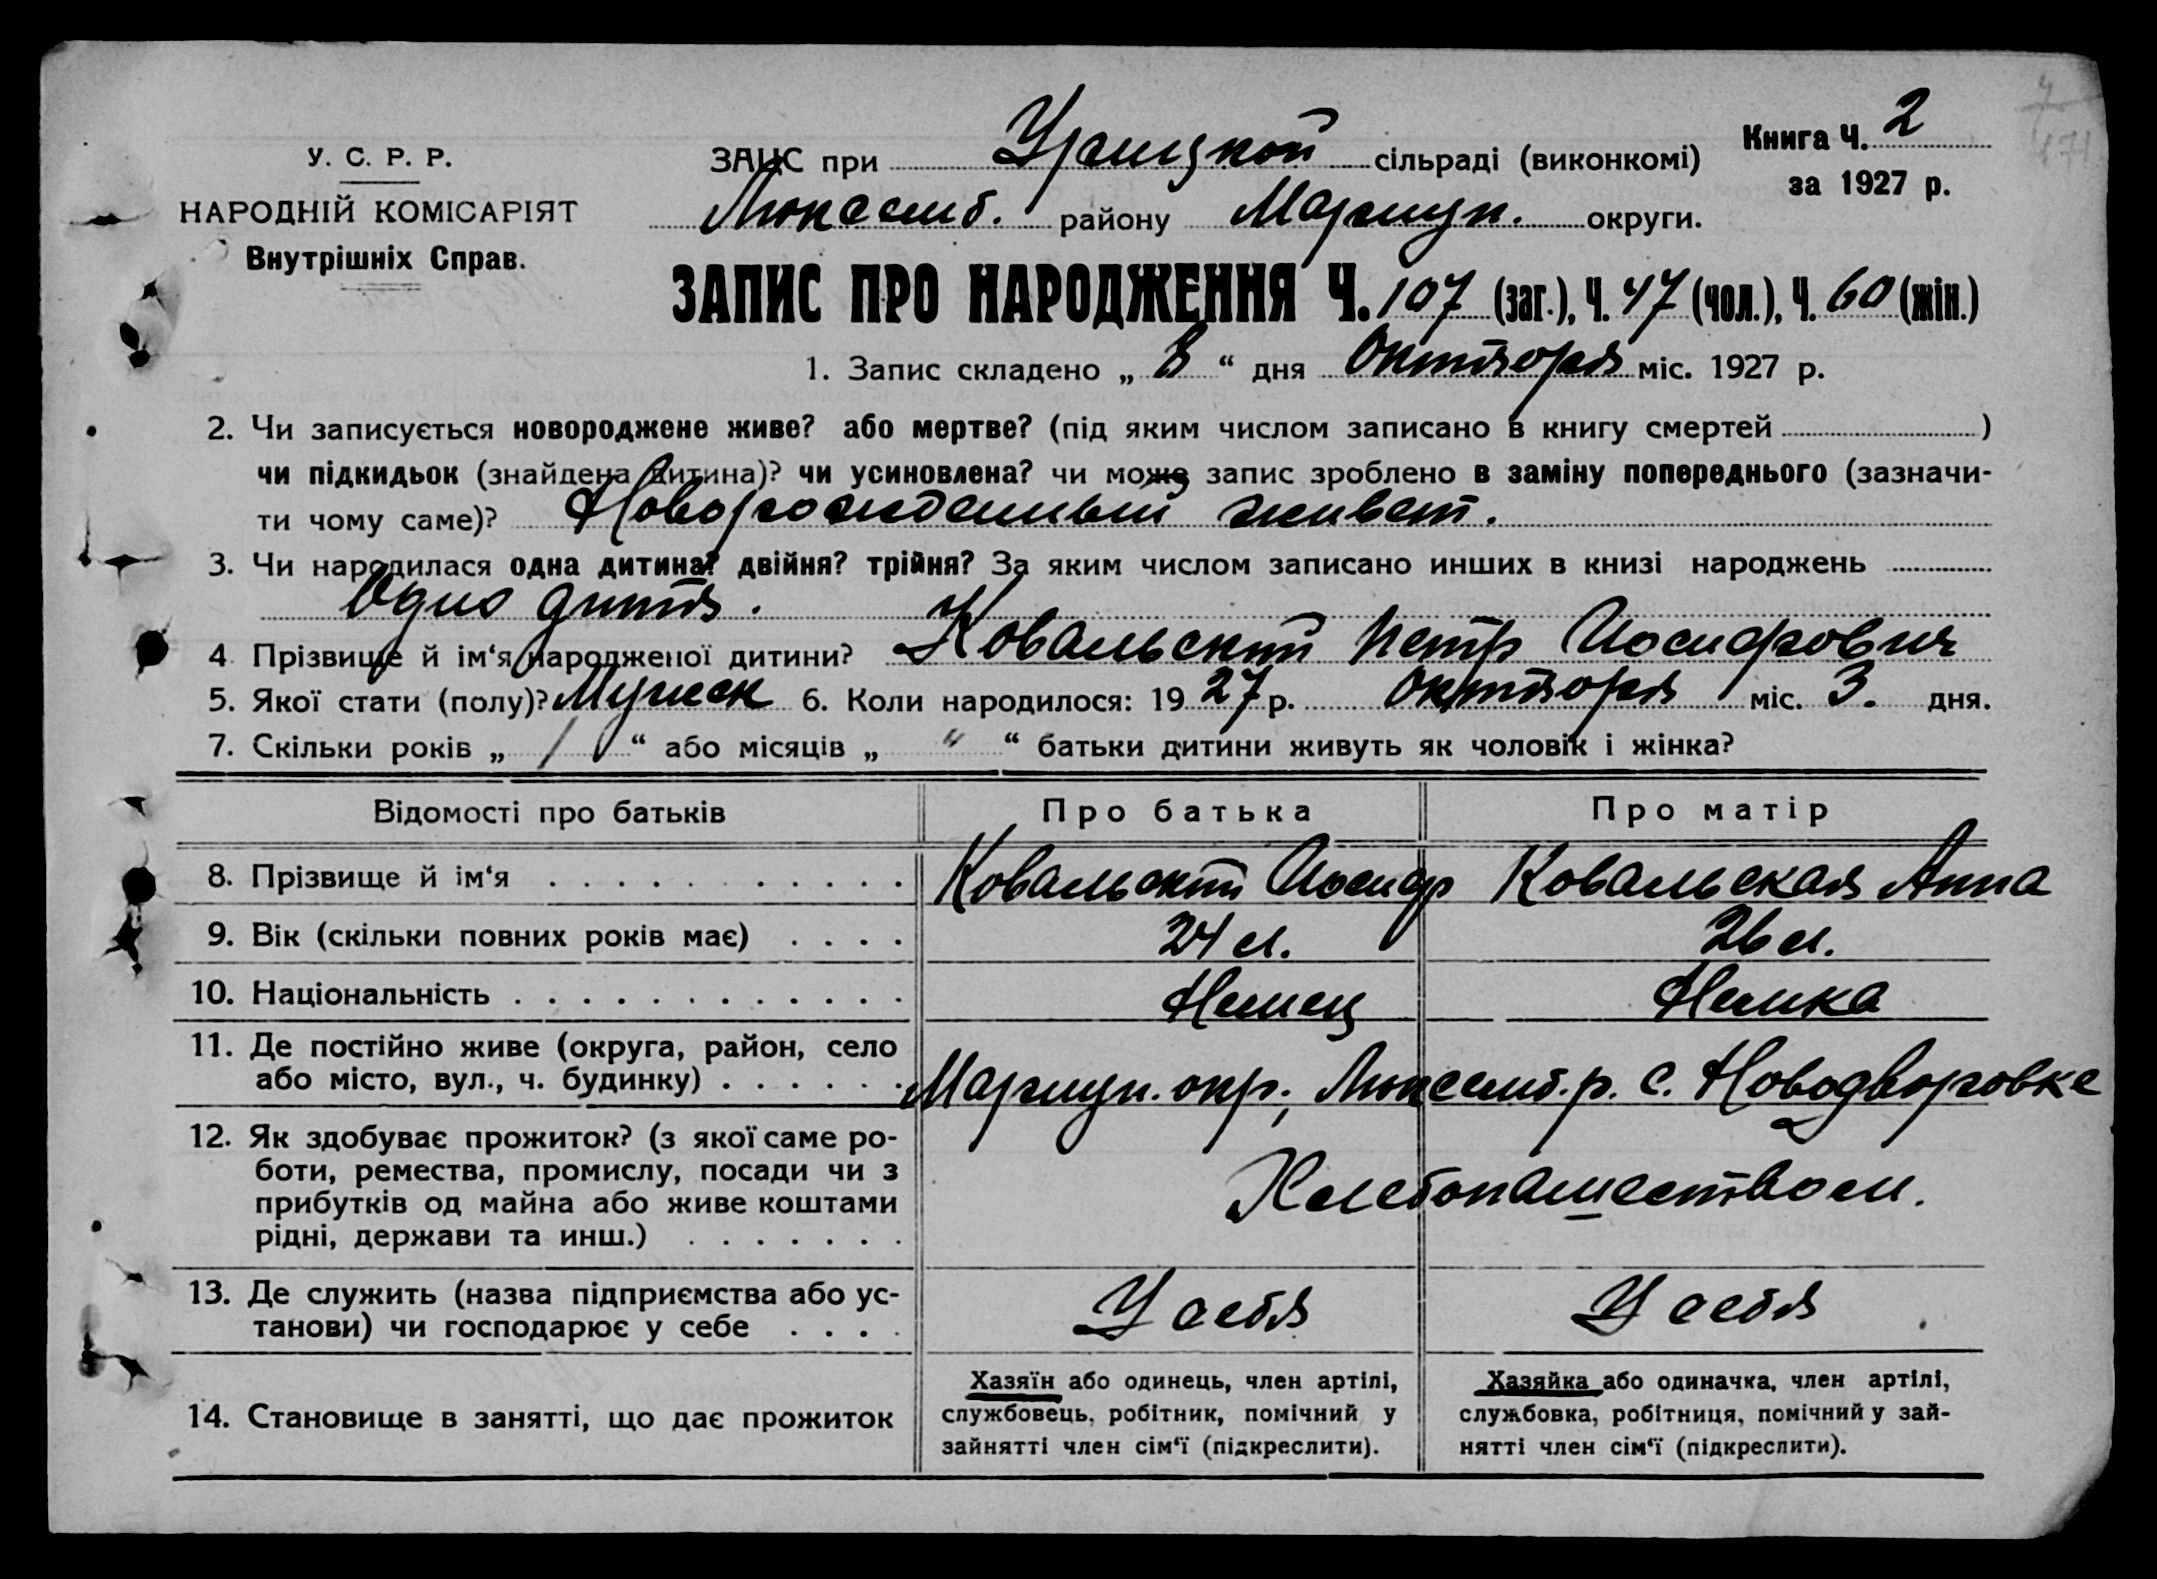 У. С. Р. Р.
НАРОДНІЙ КОМІСАРІЯТ
Внутрішніх Справ.
ЗАЦС при Урицкой сільраді (виконкомі)
Люксемб. району Мариуп. округи.
Книга Ч. 2
за 1927 р.
ЗАПИС ПРО НАРОДЖЕННЯ Ч. 107 (заг.), Ч. 47 (чол.), Ч. 60 (жін.)
1. Запис складено „ 8 “ дня Октября міс. 1927 р.
2. Чи записується новороджене живе? або мертве? (під яким числом записано в книгу смертей )
чи підкидьок (знайдена дитина)? чи усиновлена? чи може запис зроблено в заміну попереднього (зазначи-
ти чому саме)? Новорожденный живет.
3. Чи народилася одна дитина? двійня? трійня? За яким числом записано инших в книзі народжень
Одно дитя.
4 Прізвище й ім‘я народженої дитини? Ковальский Петр Иосифович
5. Якої стати (полу)? Мужеск 6. Коли народилося: 19 27 р. Октября міс. 3. дня.
7. Скільки років „ 1 “ або місяців „ " “ батьки дитини живуть як чоловік і жінка?
Відомості про батьків Про батька Про матір
8. Прізвище й ім‘я Ковальский Иосиф Ковальская Анна
9. Вік (скільки повних років має) 24 л. 26 л.
10. Національність Немец Немка
11. Де постійно живе (округа, район, село
або місто, вул., ч. будинку) Мариуп. окр., Люксемб. р. с. Новодворовке
12. Як здобуває прожиток? (з якої саме ро-
боти, ремества, промислу, посади чи з
прибутків од майна або живе коштами
рідні, держави та инш.)
Хлебопашеством.
13. Де служить (назва підприємства або ус-
танови) чи господарює у себе
У себя У себя
14. Становище в занятті, що дає прожиток
Хазяїн або одинець, член артілі,
службовець, робітник, помічний у
зайнятті член сім‘ї (підкреслити).
Хазяйка або одиначка, член артілі,
службовка, робітниця, помічний у зай-
нятті член сім‘ї (підкреслити).